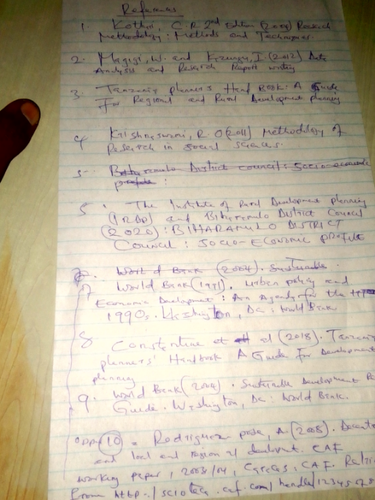 References
1. Kothari, C.R 2nd Edition (2004) Research
Methodology: Methods and Techniques.
2. and I. (2012) Data
Analysis and Research Report writing
3. planners Hand Book: A Guide
for Regional and Rural Development planning
4. Krishnaswami, R. O (2011) Methodology of
Research in Social Sciences.
5. Biharamulo District council: Socio-economic
profile:
5. The Institute of Rural Development planning
(IRDP) and Biharamulo District Council
(2020): BIHARAMULO DISTRICT
Council: Socio-Economic profile
World Bank (2004). Sustainable
7 World Bank (1991). Urban policy and
Economic Development: An Agenda for the
1990s. Washington, DC: World Bank
8. Constantine et al (2018).
planners' Handbook A Guide for Development
planning
9. World Bank (2004). Sustainable Development
Guide. Washington, DC: World Bank.
10. Rodriguez pose, A. (2008).
and local and regional development. CAF
working paper, 2008/04, Caracas, CAF.
From http:/